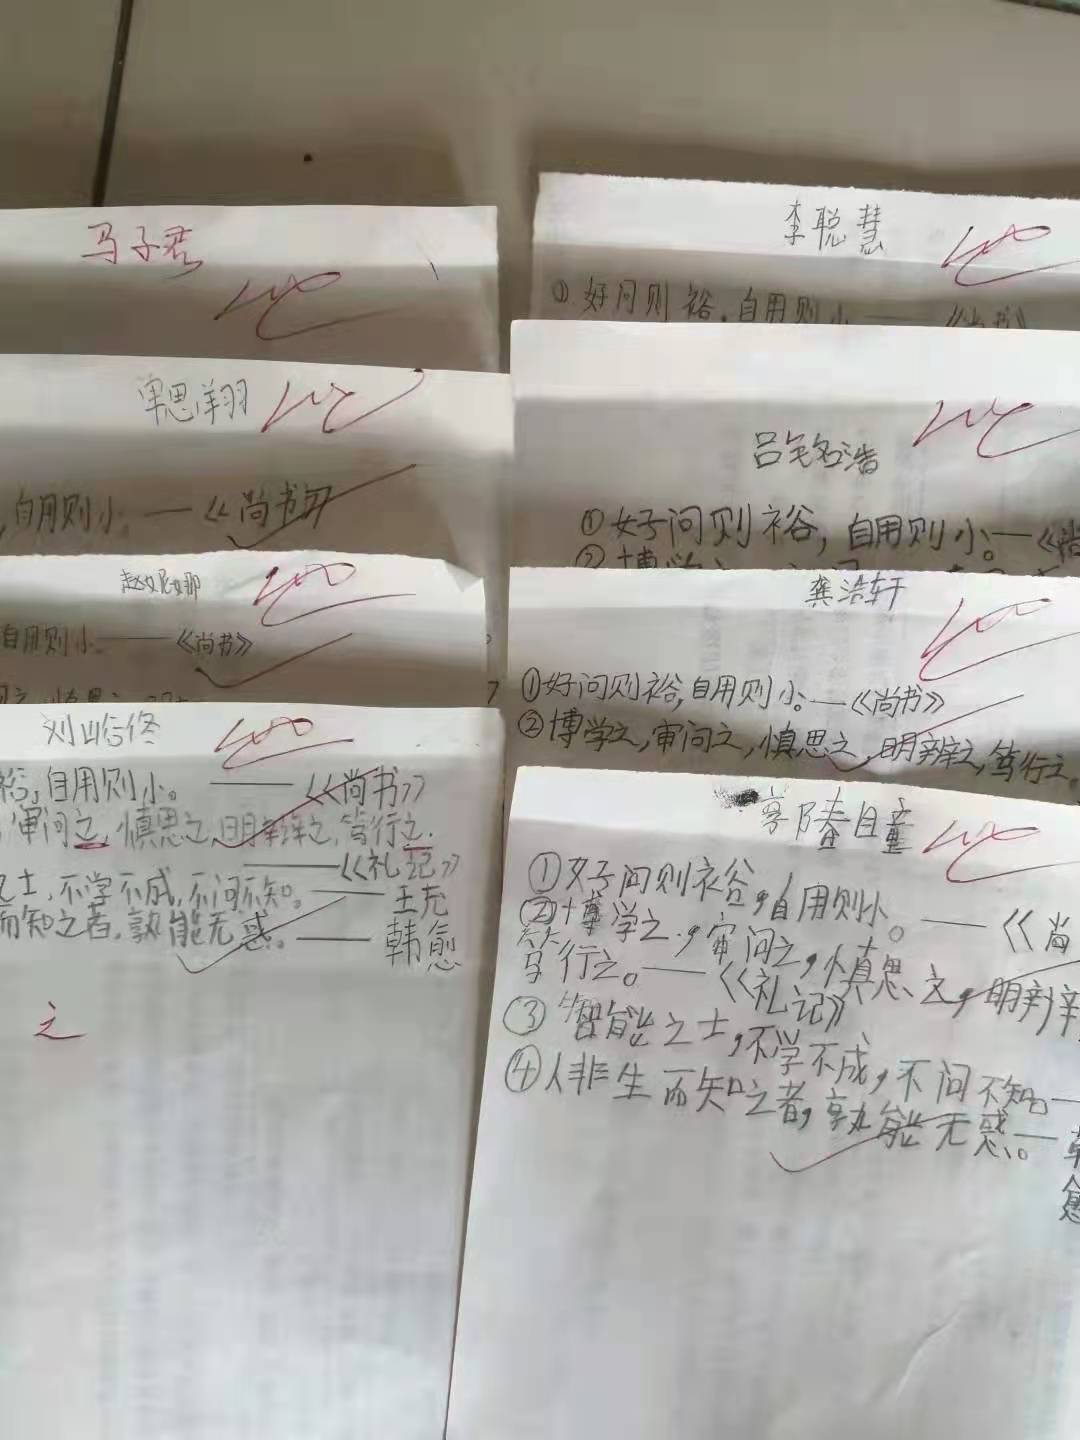 马子君
100
单思翔
100
,自用则小。——《尚书》
赵妮娜
100
自用则小。——《尚书》
刘
100
裕,自用则小。——《尚书》
审问之,慎思之,明辨之,笃行之.
——《礼记》
之士,不学不成,不问不知。——王充
而知之者,孰能无惑。——韩愈
之
李聪慧
100
①好问则裕,自用则小——《尚书》
100
吕铭浩
①好问则裕,自用则小。——《尚
②博学之
龚浩轩
100
①好问则裕,自用则小。——《尚书》
②博学之,审问之,慎思之,明辨之,笃行之。
100
①好问则裕,自用则小。——《尚
②博学之,审问之,慎思之,明辨
笃行之。——《礼记》
③智能之士,不学不成,不问不知——
④人非生而知之者,孰能无惑。——韩
愈